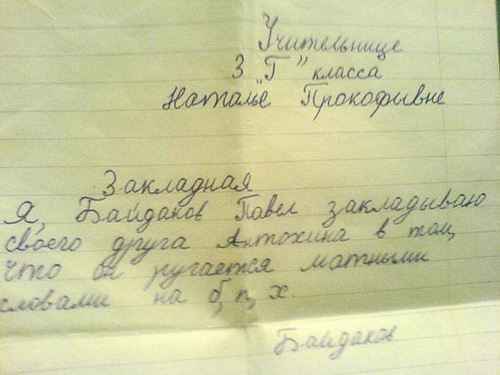 Учительнице
3 "Г" класса
Наталье Прокофивне
Закладная
Я, Байдаков Павел закладываю
своего друга Антохина в том,
что он ругается матными
словами на б, п, х.
Байдаков